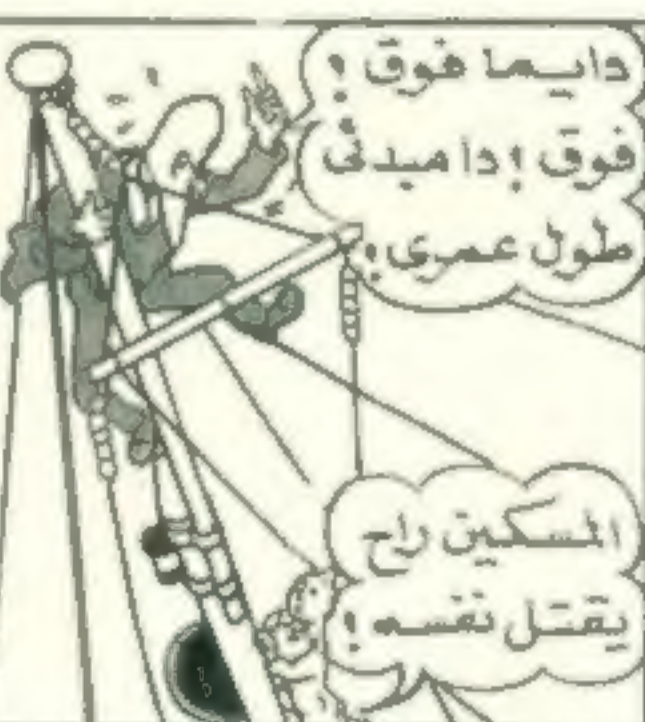 دايما فوق !
فوق ! دا مبدئى
طول عمرى !
المسكين راح
يقتل نفسه !